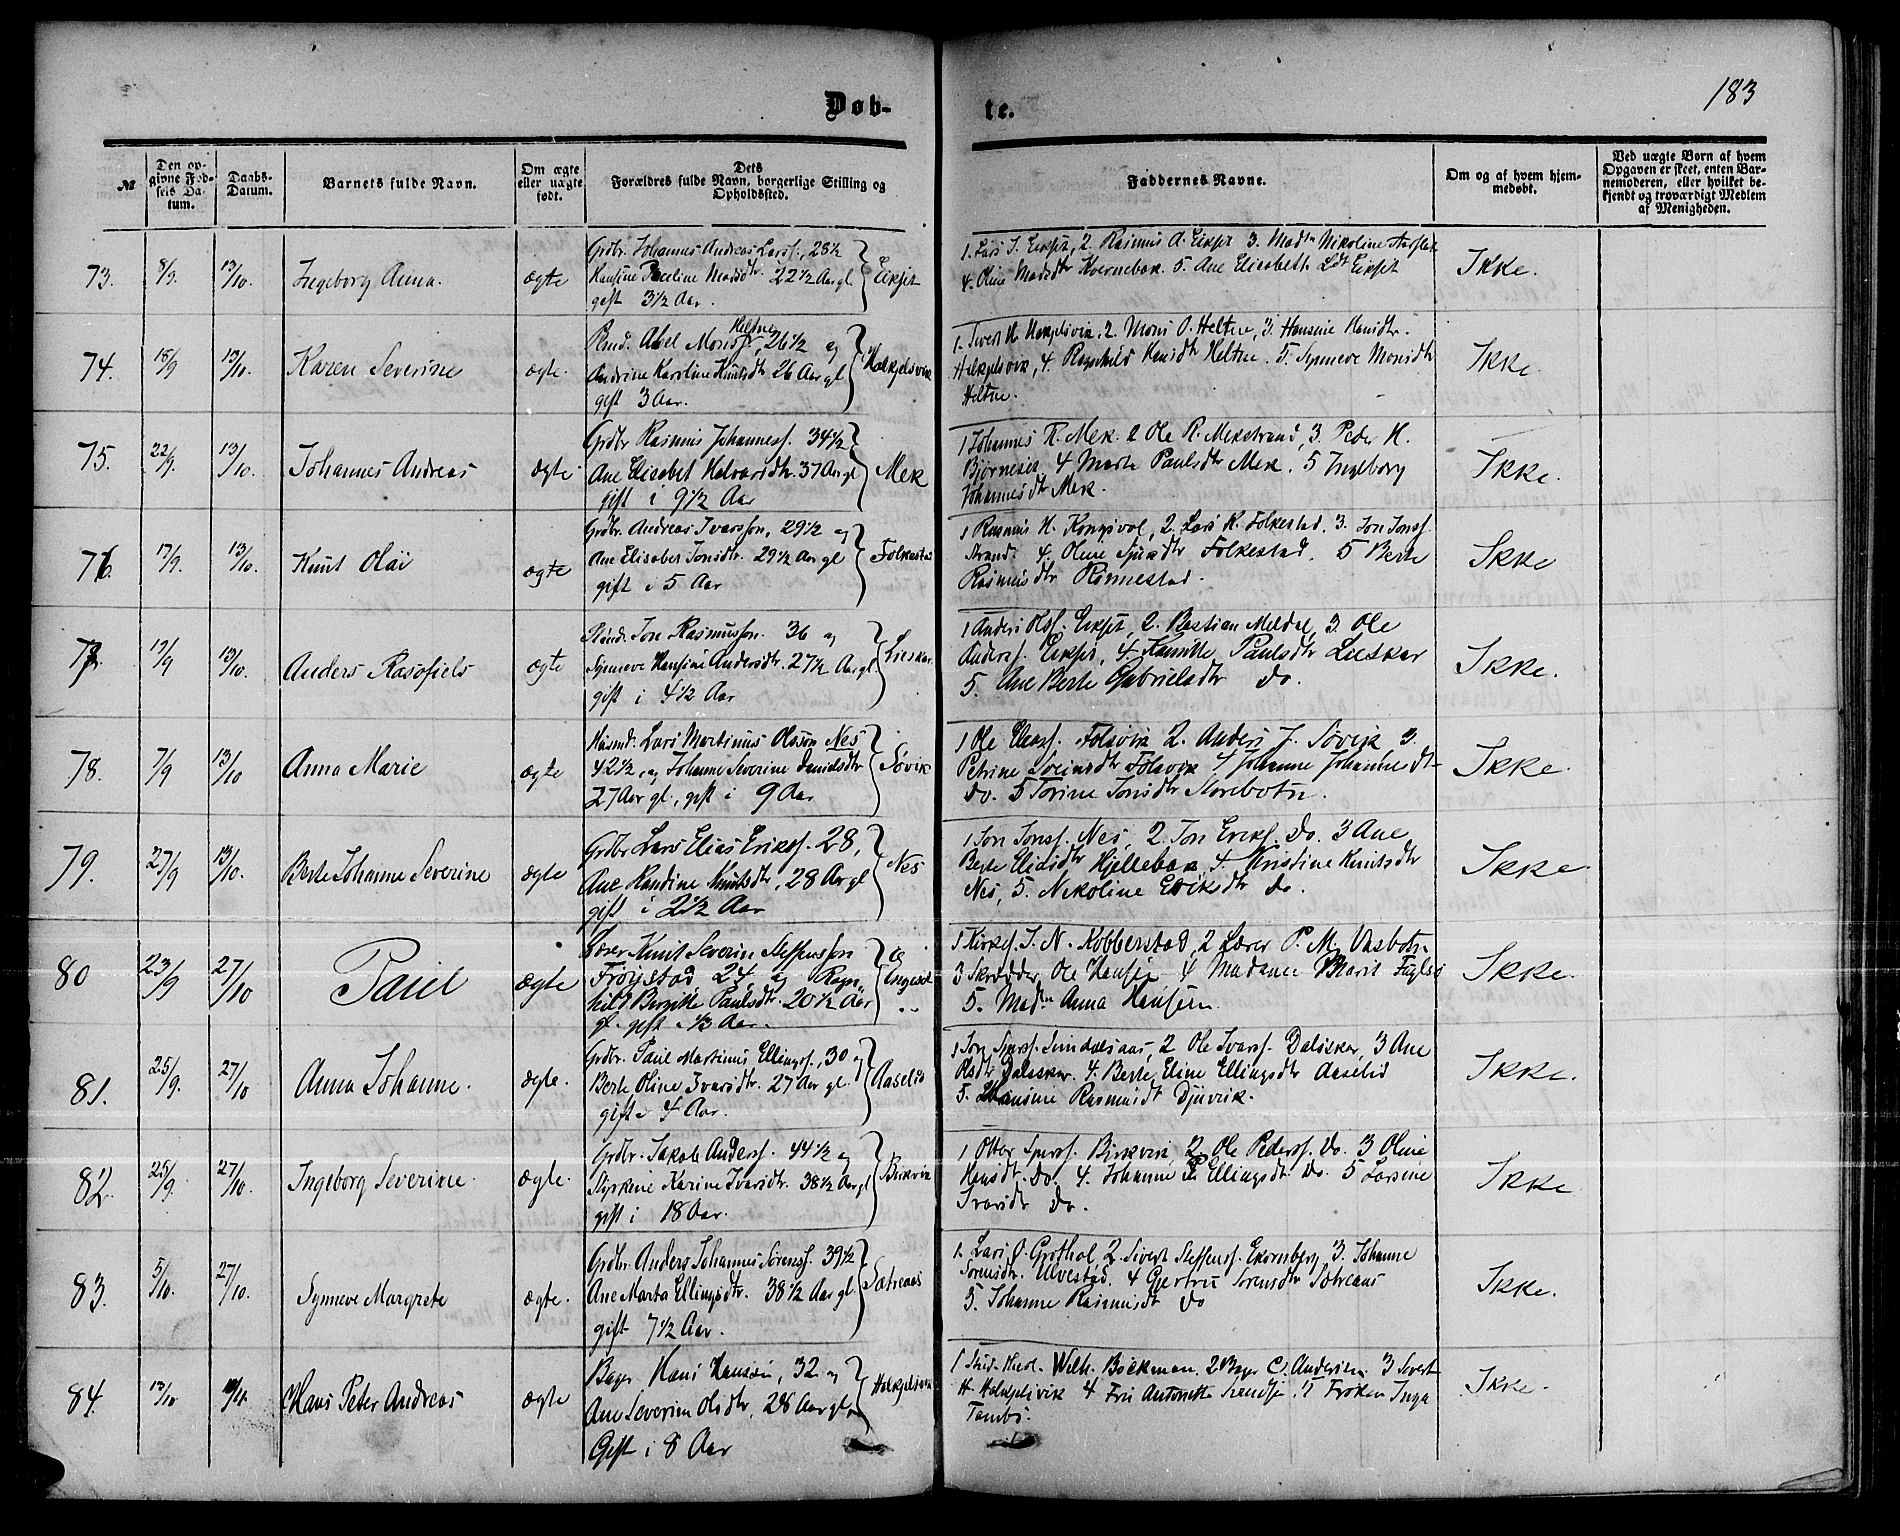 183
Døb-
te.
№
Den opgivne Fødsels Datum.
Daabs-Datum.
Barnets fulde Navn.
Om ægte eller uægte født.
Dets Forældres fulde Navn, borgerlige Stilling og Opholdssted.
Faddernes Navne.
Om og af hvem hjemmedøbt.
Ved uægte Børn af hvem Opgaven er skeet, enten Barnemoderen, eller hvilket bekjendt og troværdigt Medlem af Menigheden.
73. 8/9. 13/10. Ingeborg Anna. ægte
Grdbr. Johannes Andreas Larss., 28 1/2
Hansine Madsdtr. 22 1/2 Aar gl.
gift 3 1/2 Aar.
Eikset
1. Lars J. Eikset, 2. Rasmus A. Eikset 3. Madm Nikoline
4. Oline Madsdtr Kvernebak. 5. Ane Elisabeth Ldt Eikset
Ikke.
74. 18/9 13/10. Karen Severine ægte.
Heltne
Abel Monss, 26 1/2 og
Andrine Karoline Knutsdtr 26 Aar gl
gift 3 Aar.
Halkjelsvik
1. Sivert H Halkjelsvik, 2. Mons O. Heltne, 3. Hansine Hansdtr.
Halkjelsvik, 4. Ragnhild Hansdtr Heltne. 5. Synneve Monsdtr
Heltne.
Ikke
75. 22/9. 13/10. Johannes Andreas ægte
Grdbr Rasmus Johanness. 34 1/2
Ane Elisabet Halvarsdtr. 37 Aar gl
gift i 9 1/2 Aar
Mek
1 Johannes R. Mek. 2 Ole R. Mekstrand, 3. Peder H.
Bjørneset, 4 Marte Paulsdtr Mek. 5 Ingeborg
Johannesdtr Mek.
Ikke.
76. 17/9. 13/10. Knut Olai ægte
Grdbr. Andreas Ivarsson, 29 1/2 og
Ane Elisabet Jonsdtr. 29 1/2 Aar gl
gift i 5 Aar
Folkestad
1 Rasmus H. Kongsvol, 2. Lars K. Folkestad. 3. Jon Jonss.
Strand. 4. Oline Sjursdtr Folkestad. 5 Berte
Rasmusdtr Rønnestad.
Ikke
77. 19/9 13/10. Anders Rasofiels ægte
Jon Rasmusson. 36 og
Synneve Hansine Andersdtr. 27 1/2 Aar gl.
gift i 4 1/2 Aar
Lieskar
1 Anders Olss. Eikset, 2. Bastian Meldal, 3. Ole
Anderss. Eikset, 4. Kamille Paulsdtr Lieskar
5. Ane Berte Gabrielsdtr Do.
Ikke.
78. 7/9 13/10 Anna Marie ægte
Husmd. Lars Martinus Olsson Nes
42 1/2, og Johanne Severine Danielsdtr
27 Aar gl., gift i 9 Aar
Søvik
1 Ole Folsvik 2. Anders J. Søvik 3.
Petrine Sveinsdtr Folsvik 4 Johanne Johannesdt
Do. 5 Torine Jonsdtr Storebotn.
Ikke
79. 27/9 13/10. Berte Johanne Severine ægte
Grdbr Lars Elias Erikss. 28,
Ane Randine Knutsdtr, 28 Aar gl
gift i 2 1/2 Aar
Nes
1 Jon Jonss. Nes, 2. Jon Erikss. Do. 3 Ane
Berte Eliasdtr Hjellebak 4. Kristine Knutsdtr
Nes, 5. Nikoline Eriksdtr Do.
Ikke
80 23/9 27/10 Paul ægte
Lærer Knut Severin Steffensson
Frøystad, 24, og Ragn-
hild Bergitte Paulsdtr. 20 1/2 Aar
gl. gift i 1/3 Aar.
1 Kirkes. J. N. Kobberstad, 2 Lærer P. M. Vasbotn
3 Skrædder Ole Hansen 4 Madame Marit Fugles
5. Madm Anna Hansen.
Ikke.
81. 25/9. 27/10 Anna Johanne. ægte.
Grdbr. Paul Martinus Ellingss., 30 og
Berte Oline Ivarsdtr. 27 Aar gl.
gift i 4 Aar.
Aaselid
1 Jon Sjurss. Sundalsaas, 2 Ole Ivarss. Dalsskar, 3 Ane
Olsdtr Dalsskar. 4. Berte Eline Ellingsdtr Aaselid
5. Hansine Rasmusdt Djuvik.
Ikke.
82. 25/9. 27/10. Ingeborg Severine. ægte.
Grdbr. Jakob Anderss. 44 1/2 og
Styrkine Karine Ivarsdtr. 38 1/2 Aar gl
gift i 18 Aar.
Birkvik
1 Otter Sjurss. Birkvik, 2. Ole Pederss. Do. 3 Oline
Hansdt. Do. 4. Johanne P. Ellingsdt. Do. 5 Larsine
Ivarsdt Do.
Ikke
83. 5/10. 27/10. Synneve Margrete ægte.
Grdbr. Anders Johannes Sørenss. 39 1/2
Ane Marta Ellingsdtr. 38 1/2 Aar gl
gift 7 1/2 Aar.
Sætreaas
1. Lars O. Grøthol, 2. Sivert Steffenss. Ekornberg 3. Johanne
Sørensdtr. Ulvestad. 4 Gjertru Sørensdtr Sætreaas
5. Johanne Rasmusdt Do
Ikke.
84. 13/10 Hans Peter Andreas ægte
Bager Hans Hansen, 32 og
Ane Severine Olsdtr, 28 Aar gl.
Gift i 8 Aar
Halkjelsvik
1 Stud. theol. Wilh. Bøckman. 2 Bager C. Andersen 3 Sivert
H. Halkjelsvik 4 Frk Antonette Svendsen 5 Frøken Inga
Tambs.
Ikke.